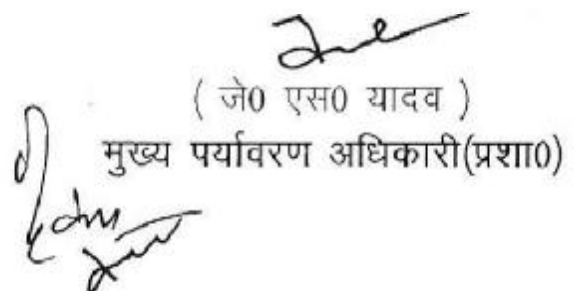 ( जे0 एस0 यादव )
मुख्य पर्यावरण अधिकारी(प्रशा0)